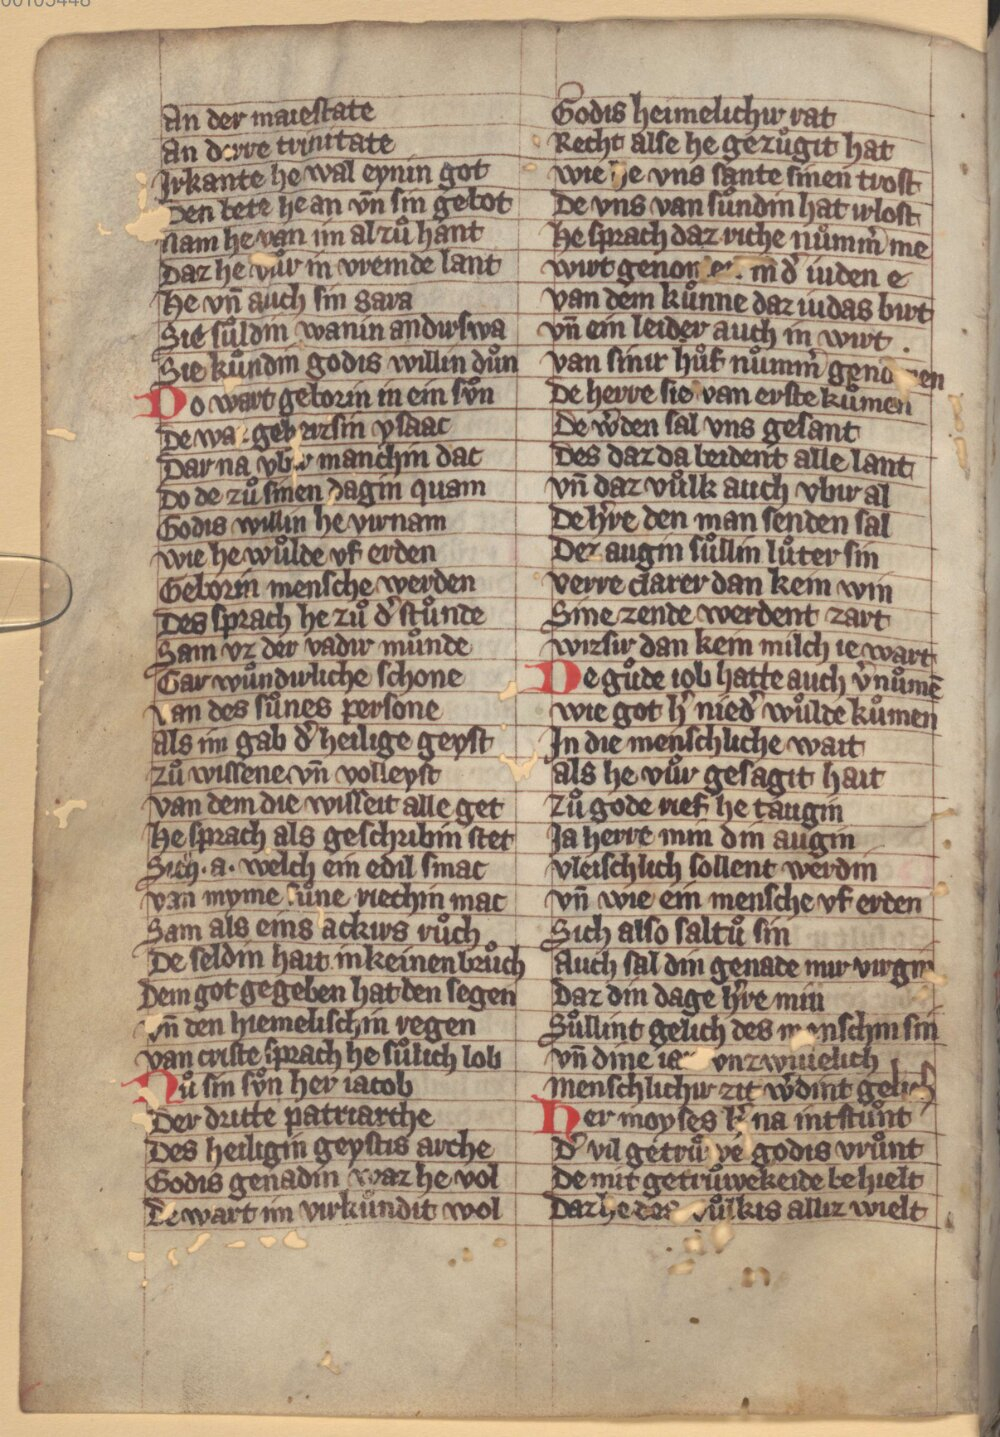 An der maiestate
An dirre trinitate
Irkante he wal eynin got
Den bete he an vn̄ sin gebot
Nam he van im al zů hant
Daz he vůr in vremde lant
He vn̄ auch sin sara
Sie sůldin wanin andirswa
Sie kůndin godis willin důn
Do wart geborin in ein sůn
De waz geheizsin ysaac
Dar na vbir manchin dac
Do de zů sinen dagin quam
Godis willin he virnam
Wie he wůlde vf erden
Geborin mensche werden
Des sprach he zů d' stůnde
Sam vz der vadir můnde
Gar wůndirliche schone
Van des sůnes persone
Als im gab d' heilige geyst
Zů wissene vn̄ volleyst
Van dem die wisheit alle get
He sprach als geschribin stet
Sich .a. welch ein edil smac
Van myme sůne riechin mac
Sam als eins ackirs růch
De seldin hait inkeinen brůch
Dem got gegeben hat den segen
Vn̄ den hiemelischin regen
Van criste sprach he sůlich lob
Nů sin sůn her iacob
Der dritte patriarche
Des heiligin geystis arche
Godis genadin waz he vol
De wart im virkůndit wol
Godis heimelichir rat
Recht alse he gezůgit hat
Wie he vns sante sinen trost
De vns van sůndin hat irlost
He sprach daz riche nům̄m' me
Wirt genomen in d' iuden e
Van dem kůnne daz iudas birt
Vn̄ ein leider auch in wirt
Van sinir hůf nům̄m' genomen
De herre sie van erste kůmen
De w'den sal vns gesant
Des daz da beident alle lant
Vn̄ daz vůlk auch vbir al
De h're den man senden sal
Der augin sůllin lůter sin
Verre clarer dan kein win
Sine zende werdent zart
Wizsir dan kein milch ie wart
De gůde iob hatte auch v'nůmē
Wie got h' nied' wůlde kůmen
In die menschliche wart
Als he vůr gesagit hait
Zů gode rief he taugin
Ja herre min din augin
Vleischlich sollent werdin
Vn̄ wie ein mensche vf erden
Sich also saltů sin
Auch sal din genade mir virgin
Daz din dage h're min
Sůllint gelich des menschin sin
Vn̄ dine iar vnzwiuelich
Menschlichir zit w'dint gelich
Her moyses h' na intstůnt
D' vil getrůwe godis vrůnt
De mit getrůwekeide behielt
Daz he des vůlkis allir wielt